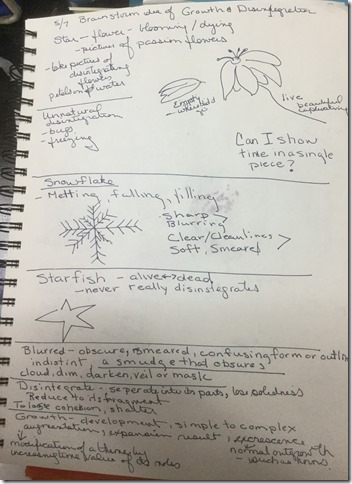 5/7 Brainstorm idea of Growth & Disintegration
Star - flower - blooming / dying
- picture of passion flowers
- take picture of disintegrating flower
petals in water
Unnatural disintegration
- bugs
- freezing
empty
live
beautiful
captivating
Can I show time in a single piece?
Snowflake
- Melting, falling, filling
Sharp >
Blurring
Clear/Clean lines >
Soft, Smeared
Starfish - alive ↔ dead
- never really disinstegrates
Blurred - obscure, smeared, confusing form or outline
indistint, a smudge that obsures
cloud, dim, darken, veil or mask
Disintegrate - seperate into its parts, lose solidness
Reduce to its fragment
To lose cohesion, shatter
Growth - development, simple to complex
augmentation, expansion result, excrescence
normal outgrowth
- such as horns
modification of a theme by
increasing time value of its notes